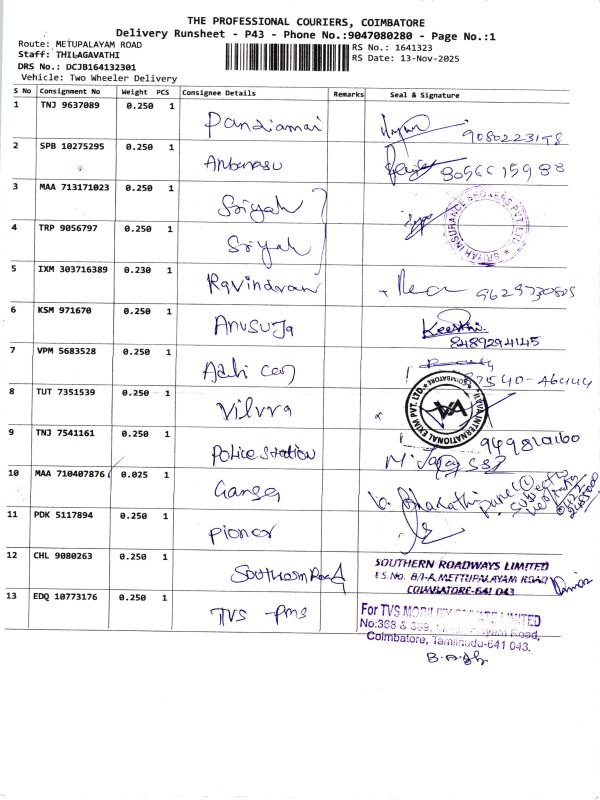 THE PROFESSIONAL COURIERS, COIMBATORE
Delivery Runsheet - P43 - Phone No.:9047080280 - Page No.:1
Route: METUPALAYAM ROAD
RS No.: 1641323
Staff: THILAGAVATHI
RS Date: 13-Nov-2025
DRS No.: DCJB164132301
Vehicle: Two Wheeler Delivery
S No Consignment No Weight PCS Consignee Details Remarks Seal & Signature
1 TNJ 9637089 0.250 1 Pandiamai 9080223198
2 SPB 10275295 0.250 1 Anbarasu 8056615988
3 MAA 713171023 0.250 1 Sriyah
SRIYAH INSURANCE BROKERS PVT LTD
4 TRP 9056797 0.250 1 Sriyah
5 IXM 303716389 0.230 1 Ravindran 9629730805
6 KSM 971670 0.250 1 Anusuja Keerthi.
8489294145
7 VPM 5683528 0.250 1 Adhi cen
8 TUT 7351539 0.250 1 Vilvra
ILAVA INTERNATIONAL EXIM PVT. LTD. COIMBATORE
9 TNJ 7541161 0.250 1 Police Station
10 MAA 710407876 0.025 1 Ganga
11 PDK 5117894 0.250 1 Pionor
12 CHL 9080263 0.250 1 Southern Road
SOUTHERN ROADWAYS LIMITED
S.No. 8/1-A, METTUPALAYAM ROAD
COIMBATORE-641 043
13 EDQ 10773176 0.250 1 TVS - pms
For TVS MOBILITY PRIVATE LIMITED
No:368 & 369, Road,
Coimbatore, Tamilnadu-641 043.